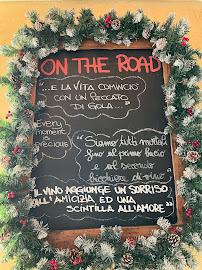 ON THE ROAD
"...E LA VITA COMINCIÒ
CON UN PECCATO
DI GOLA..."
Every
moment
is
precious
"Siamo tutti mortali
fino al primo bacio
e al secondo
bicchiere di vino"
IL VINO AGGIUNGE UN SORRISO
ALL'AMICIZIA ED UNA
SCINTILLA ALL'AMORE"